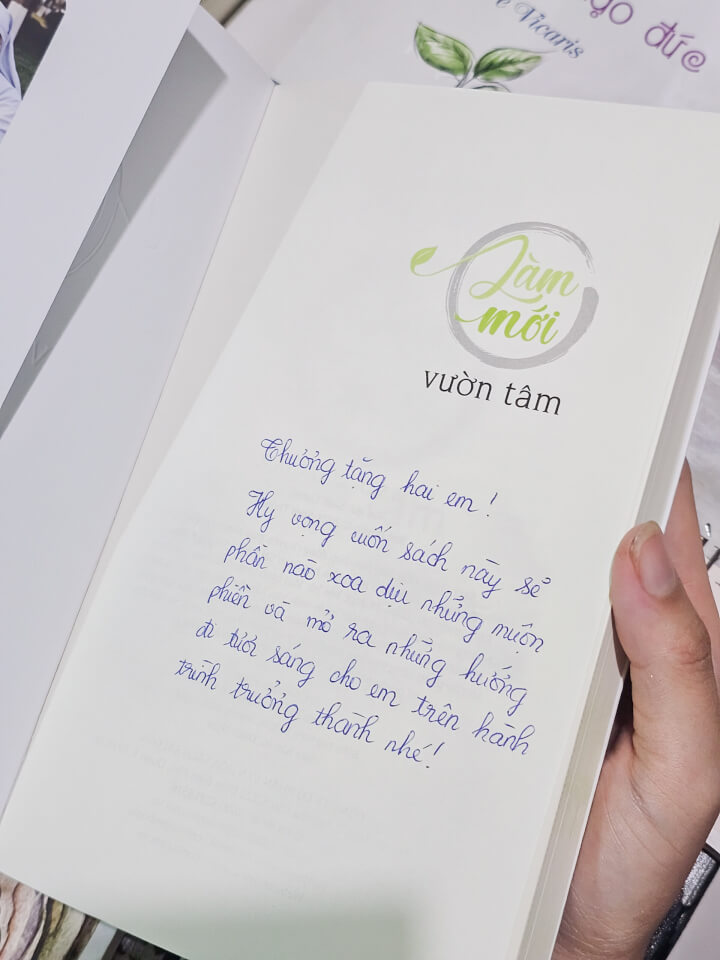 đức
e Vicaris
Làm
mới
vườn tâm
Thương tặng hai em!
Hy vọng cuốn sách này sẽ
phần nào xoa dịu những muộn
phiền và mở ra những hướng
đi tươi sáng cho em trên hành
trình trưởng thành nhé!